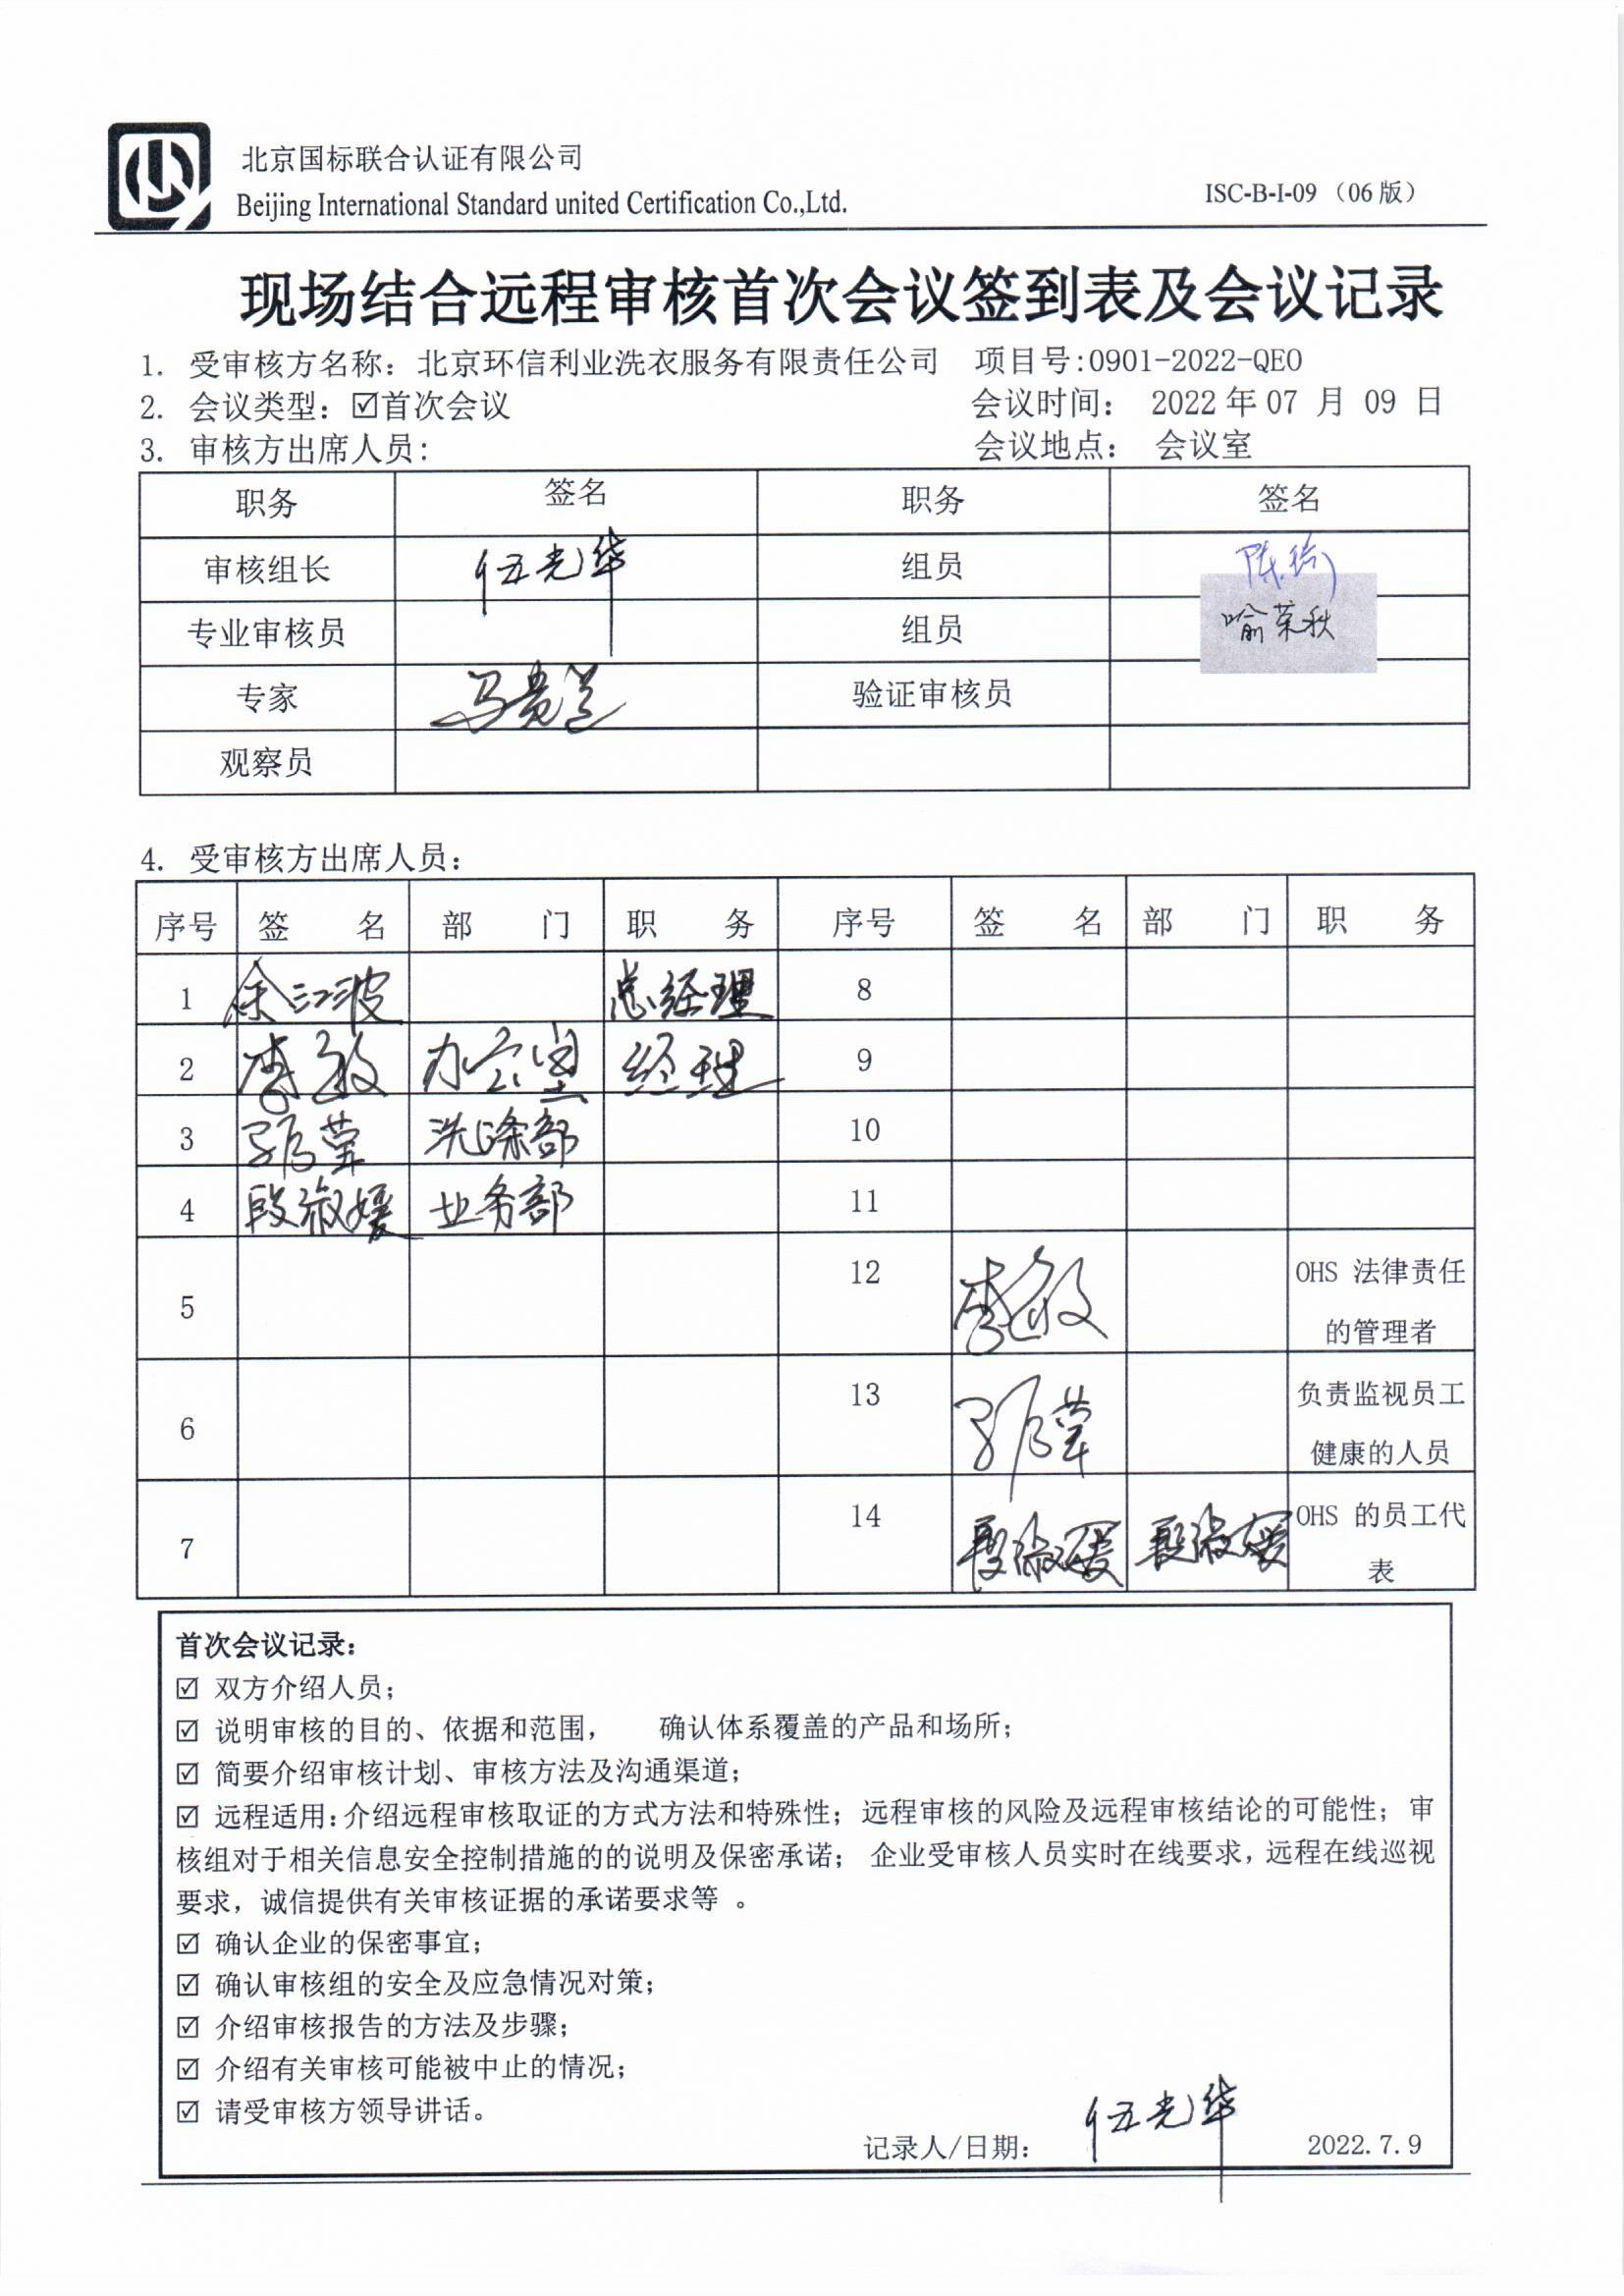 北京国标联合认证有限公司
Beijing International Standard united Certification Co.,Ltd.
ISC-B-I-09 （06 版）
现场结合远程审核首次会议签到表及会议记录
1. 受审核方名称：北京环信利业洗衣服务有限责任公司 项目号:0901-2022-QEO
2. 会议类型：☑首次会议 会议时间： 2022 年 07 月 09 日
3. 审核方出席人员： 会议地点： 会议室
职务 签名 职务 签名
审核组长 伍光华 组员
专业审核员 组员 喻荣秋
专家 验证审核员
观察员
4. 受审核方出席人员：
序号 签 名 部 门 职 务 序号 签 名 部 门 职 务
1 余江波 总经理 8
2 李敏 办公室 经理 9
3 洗涤部 10
4 段淑媛 业务部 11
5 12 李敏 OHS 法律责任
的管理者
6 13 负责监视员工
健康的人员
7 14 段淑媛 段淑媛 OHS 的员工代
表
首次会议记录：
☑ 双方介绍人员；
☑ 说明审核的目的、依据和范围， 确认体系覆盖的产品和场所；
☑ 简要介绍审核计划、审核方法及沟通渠道；
☑ 远程适用：介绍远程审核取证的方式方法和特殊性；远程审核的风险及远程审核结论的可能性；审
核组对于相关信息安全控制措施的的说明及保密承诺； 企业受审核人员实时在线要求，远程在线巡视
要求，诚信提供有关审核证据的承诺要求等 。
☑ 确认企业的保密事宜；
☑ 确认审核组的安全及应急情况对策；
☑ 介绍审核报告的方法及步骤；
☑ 介绍有关审核可能被中止的情况；
☑ 请受审核方领导讲话。
记录人/日期： 伍光华 2022.7.9